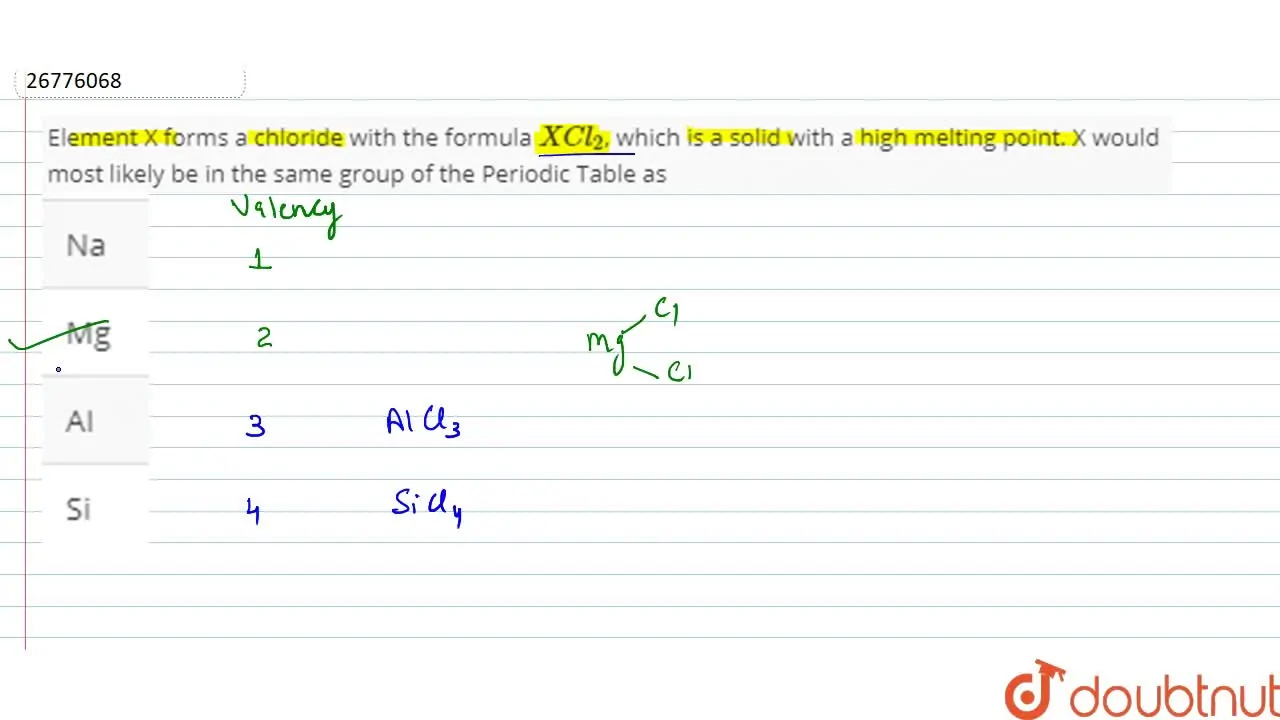 26776068
Element X forms a chloride with the formula XCl₂, which is a solid with a high melting point. X would
most likely be in the same group of the Periodic Table as
Valency
Na 1
Mg 2 Mg Cl Cl
Al 3 AlCl₃
Si 4 SiCl₄
doubtnut